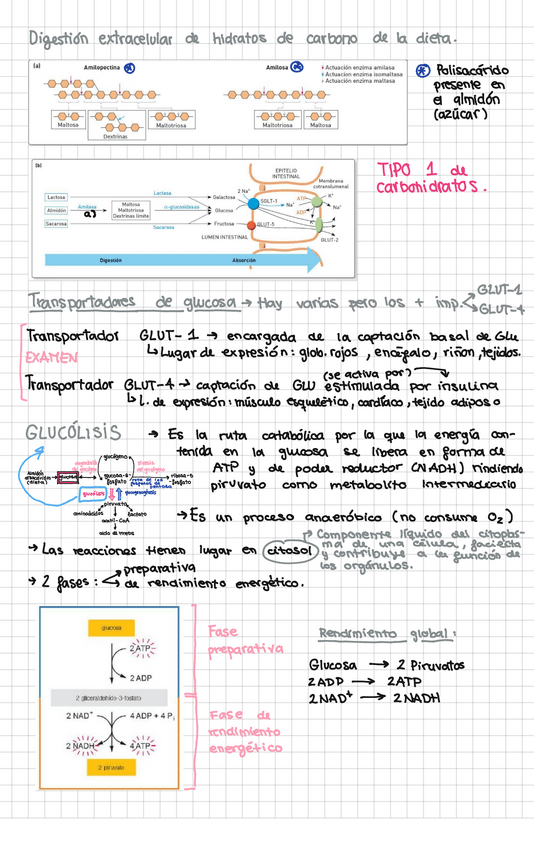 Digestión extracelular de hidratos de carbono de la dieta.
(a)
Amilopectina
Amilosa
Actuación enzima amilasa
Actuacion enzima isomaltasa
Actuación enzima maltasa
Maltosa
Dextrinas
Maltotriosa
Maltotriosa
Maltosa
Polisacárido
presente en
el almidón
(azúcar)
(b)
Lactosa
Almidón
Sacarosa
Amilasa
a)
Maltosa
Maltotriosa
Dextrinas límite
Lactasa
α-glucosidasas
Sacarasa
2 Na+
Galactosa
Glucosa
Fructosa
LUMEN INTESTINAL
EPITELIO
INTESTINAL
SGLT-1
GLUT-5
Na+
ATP
ADP
K+
Na+
K+
Membrana
contraluminal
GLUT-2
Digestión
Absorción
TIPO 1 de
carbohidratos.
Transportadores de glucosa → Hay varias pero los + imp.
GLUT-1
GLUT-4
Transportador GLUT-1 → encargada de la captación basal de Glu
EXAMEN
Lugar de expresión: glob. rojos, encéfalo, riñon, tejidos.
(se activa por)
Transportador GLUT-4 → captación de GLU estimulada por insulina
L. de expresión: músculo esquelético, cardíaco, tejido adiposo
GLUCÓLISIS
→ Es la ruta catabólica por la que la energía con-
tenida en la glucosa se libera en forma de
ATP y de poder reductor (NADH) rindiendo
piruvato como metabolito intermediario
glucógeno
glucosa-6-
fosfato
ribosa-5-
fosfato
glucólisis
piruvato
aminoácidos
lactato
acetil-CoA
→ Es un proceso anaeróbico (no consume O2)
→ Las reacciones tienen lugar en citosol
Componente líquido del citoplas-
ma de una célula, facilita
y contribuye a la función de
los orgánulos.
→ 2 fases:
preparativa
de rendimiento energético.
glucosa
2 ATP
2 ADP
2 gliceraldehído-3-fosfato
2 NAD+
4 ADP + 4 Pi
2 NADH
4 ATP
2 piruvato
Fase
preparativa
Fase de
rendimiento
energético
Rendimiento global:
Glucosa → 2 Piruvatos
2ADP → 2ATP
2NAD+ → 2NADH